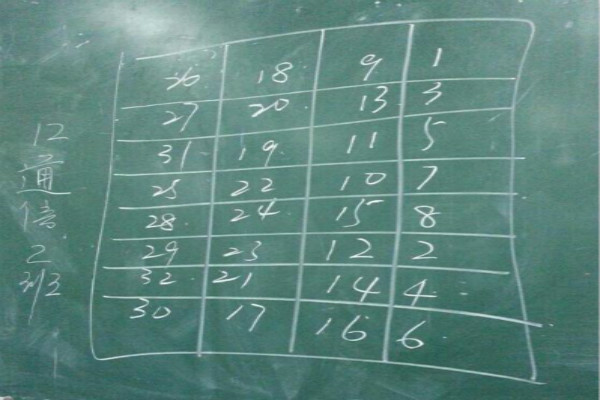 12通信2班
26 18 9 1
27 20 13 3
31 19 11 5
25 22 10 7
28 24 15 8
29 23 12 2
32 21 14 4
30 17 16 6